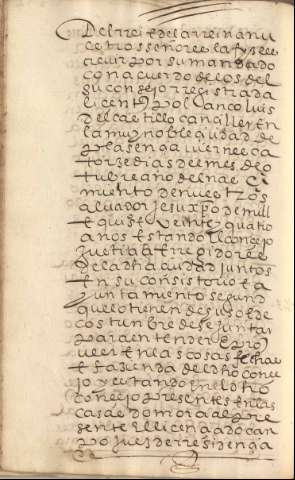 Del rrei e de la rreina nu
estros señores la fize es
creuir por su mandado
con acuerdo de los del
su consejo rregistrada
licenciatus polanco luis
del castillo canciller En
la muy noble ciudad de
plasençia viernes ca
torze dias de mes de o
tubre año del naci
miento de nuestro s
aluador Jesuxpo de mill
e quis e veinte y quatro
años estando el concejo
justicia e rregidores
de la dha ciudad juntos
En su consistorio e a
yuntamiento segund
que lo tienen de uso e de
costunbre de se juntar
para entender e pro
ueer En las cosas
e fazienda del dho conce
jo y estando En el dho
concejo presentes En las
casas do mora de pre
sente El licenciado
po juez de rresidençia